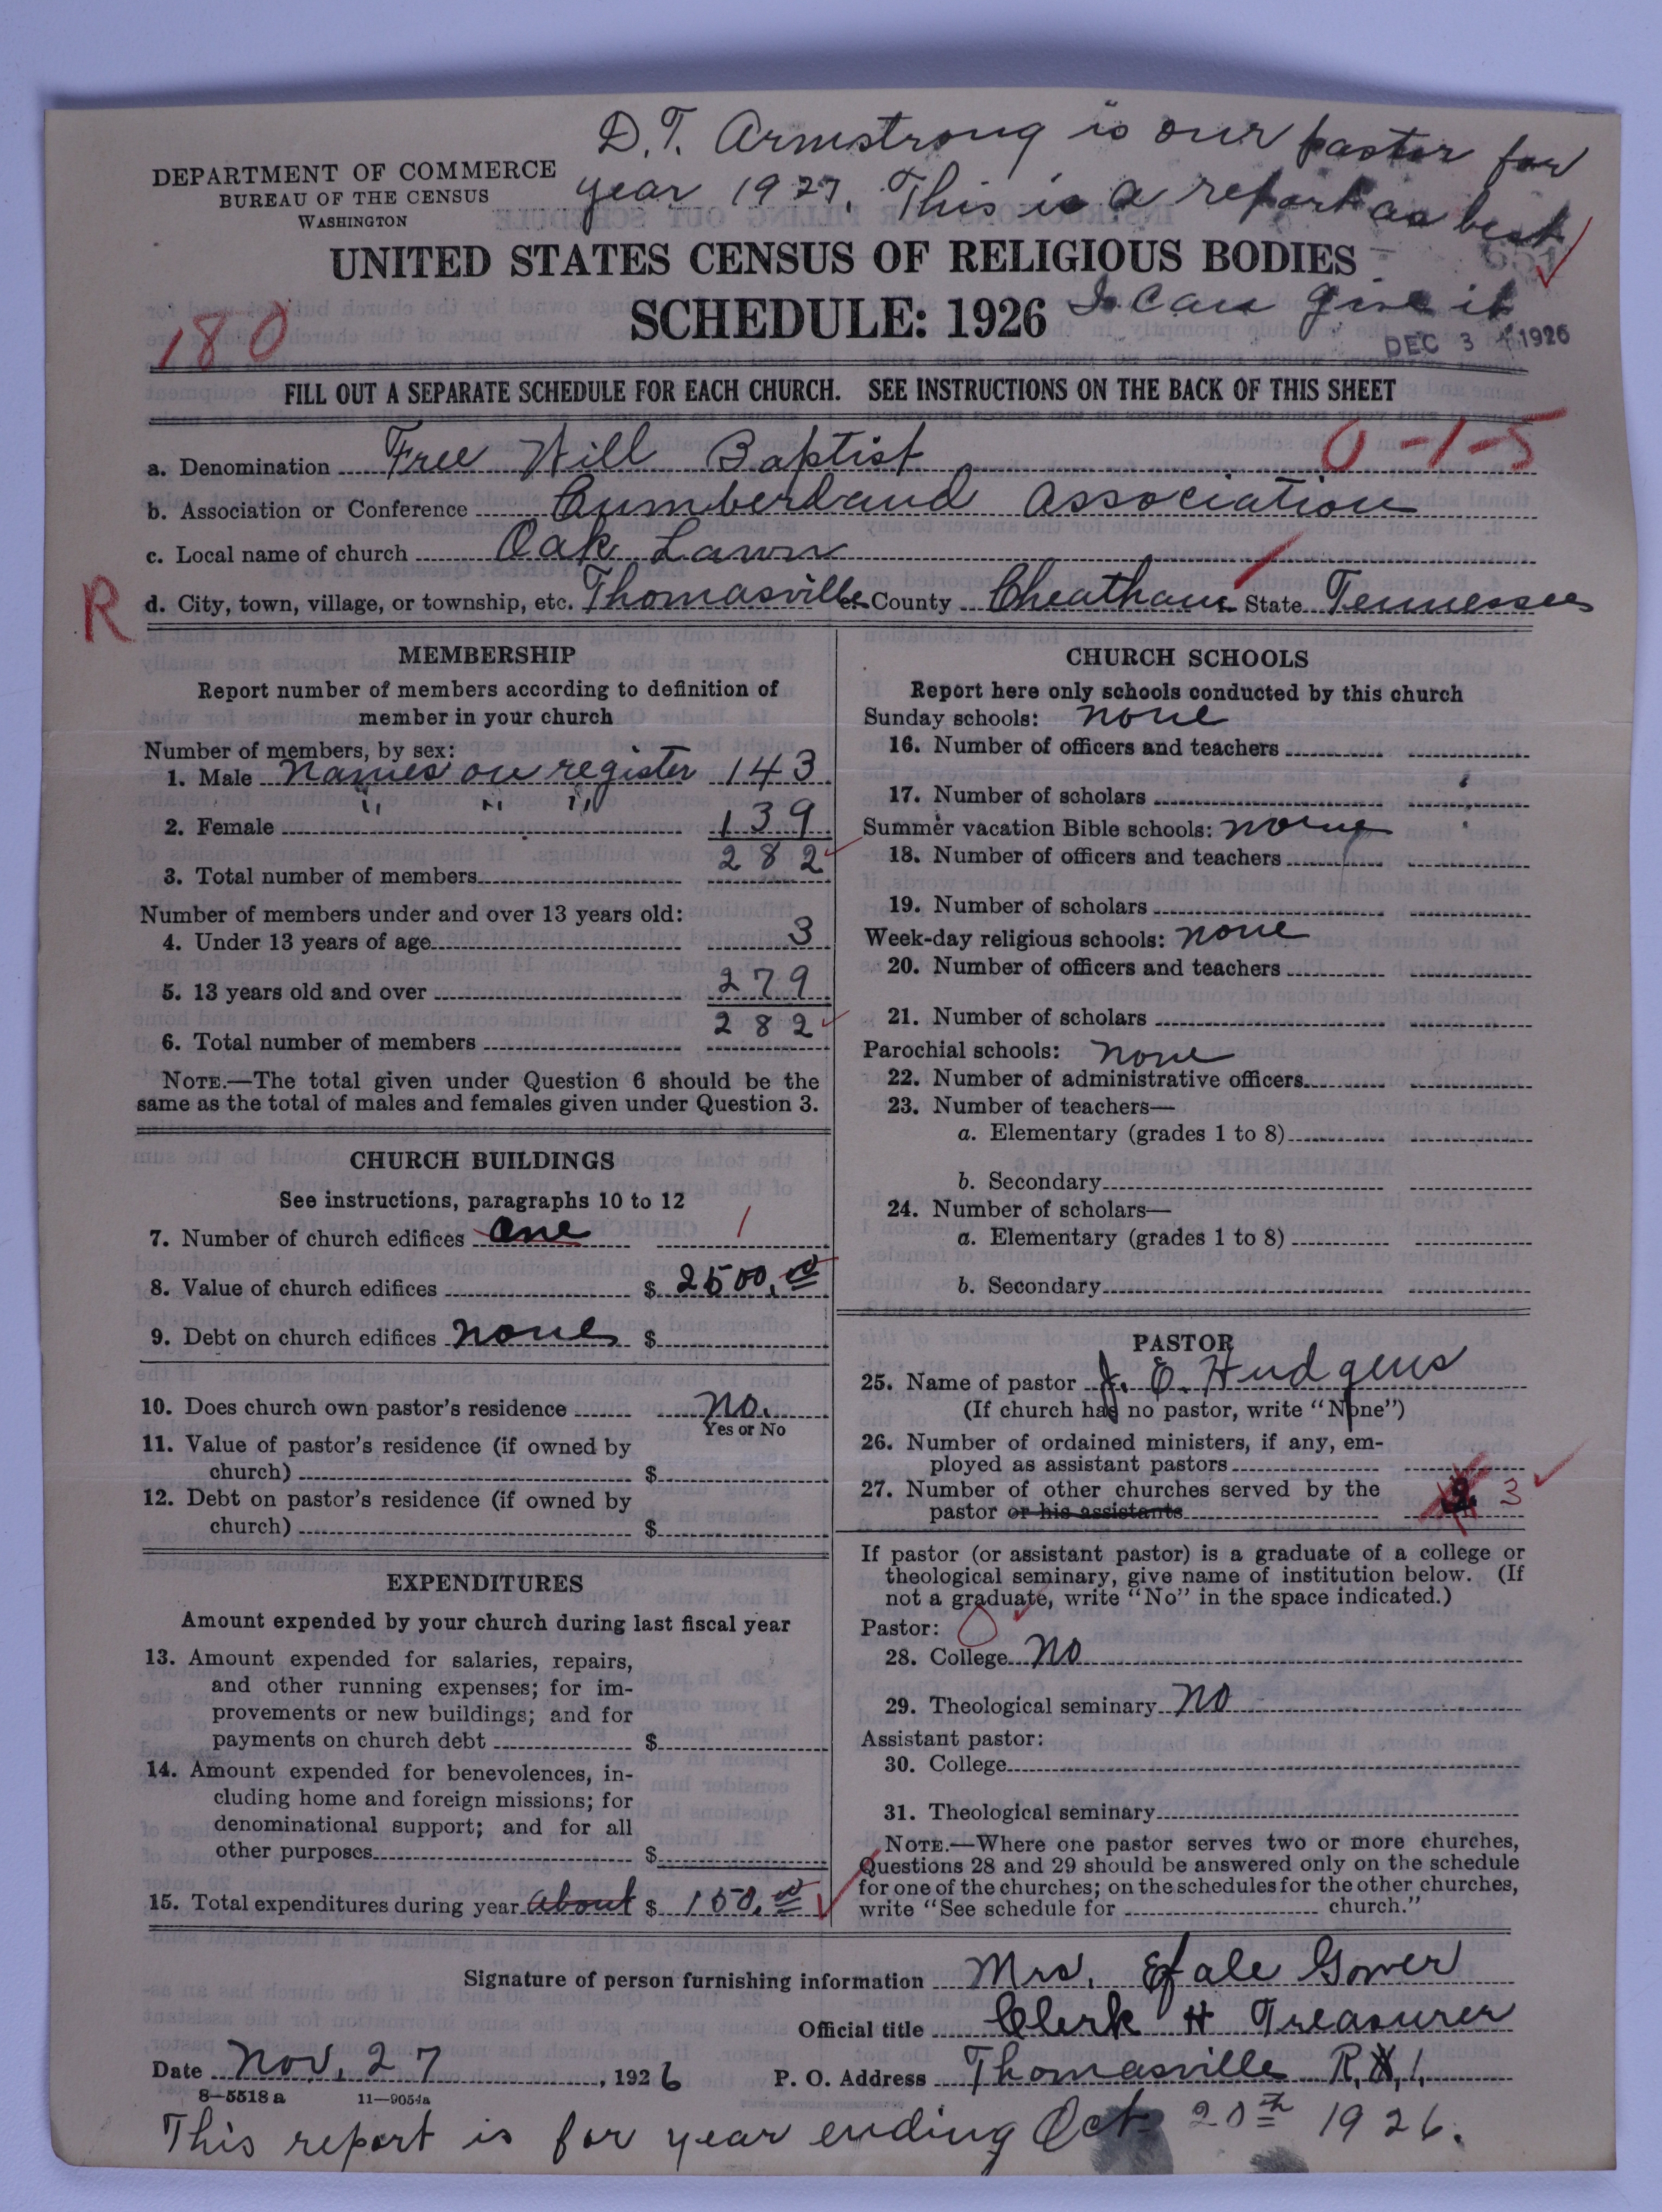 D. T. Armstrong is our pastor for
year 1927. This is a report as best
I can give it
DEPARTMENT OF COMMERCE
BUREAU OF THE CENSUS
WASHINGTON
UNITED STATES CENSUS OF RELIGIOUS BODIES
SCHEDULE: 1926
180
DEC 3 1926
FILL OUT A SEPARATE SCHEDULE FOR EACH CHURCH. SEE INSTRUCTIONS ON THE BACK OF THIS SHEET
0-1-5
a. Denomination Free Will Baptist
b. Association or Conference Cumberland Association
c. Local name of church Oak Lawn
R
d. City, town, village, or township, etc. Thomasville e. County Cheatham State Tennessee
MEMBERSHIP
Report number of members according to definition of
member in your church
Number of members, by sex:
1. Male names on register 143
2. Female " " " 139
3. Total number of members 282
Number of members under and over 13 years old:
4. Under 13 years of age 3
5. 13 years old and over 279
6. Total number of members 282
NOTE.—The total given under Question 6 should be the
same as the total of males and females given under Question 3.
CHURCH BUILDINGS
See instructions, paragraphs 10 to 12
7. Number of church edifices one 1
8. Value of church edifices $ 2500.00
9. Debt on church edifices none $
10. Does church own pastor's residence no.
Yes or No
11. Value of pastor's residence (if owned by
church) $
12. Debt on pastor's residence (if owned by
church) $
EXPENDITURES
Amount expended by your church during last fiscal year
13. Amount expended for salaries, repairs,
and other running expenses; for im-
provements or new buildings; and for
payments on church debt $
14. Amount expended for benevolences, in-
cluding home and foreign missions; for
denominational support; and for all
other purposes $
15. Total expenditures during year about $ 150.00
CHURCH SCHOOLS
Report here only schools conducted by this church
Sunday schools: none
16. Number of officers and teachers
17. Number of scholars
Summer vacation Bible schools: none
18. Number of officers and teachers
19. Number of scholars
Week-day religious schools: none
20. Number of officers and teachers
21. Number of scholars
Parochial schools: none
22. Number of administrative officers
23. Number of teachers—
a. Elementary (grades 1 to 8)
b. Secondary
24. Number of scholars—
a. Elementary (grades 1 to 8)
b. Secondary
PASTOR
25. Name of pastor J. E. Hudgens
(If church has no pastor, write "None")
26. Number of ordained ministers, if any, em-
ployed as assistant pastors
27. Number of other churches served by the
pastor or his assistants 3
If pastor (or assistant pastor) is a graduate of a college or
theological seminary, give name of institution below. (If
not a graduate, write "No" in the space indicated.)
Pastor: 0
28. College no
29. Theological seminary no
Assistant pastor:
30. College
31. Theological seminary
NOTE.—Where one pastor serves two or more churches,
Questions 28 and 29 should be answered only on the schedule
for one of the churches; on the schedules for the other churches,
write "See schedule for church."
Signature of person furnishing information Mrs. Gower
Official title Clerk & Treasurer
Date Nov. 27, 1926 P. O. Address Thomasville R, 1.
8—5518 a 11—9054a
This report is for year ending Oct 20th 1926.